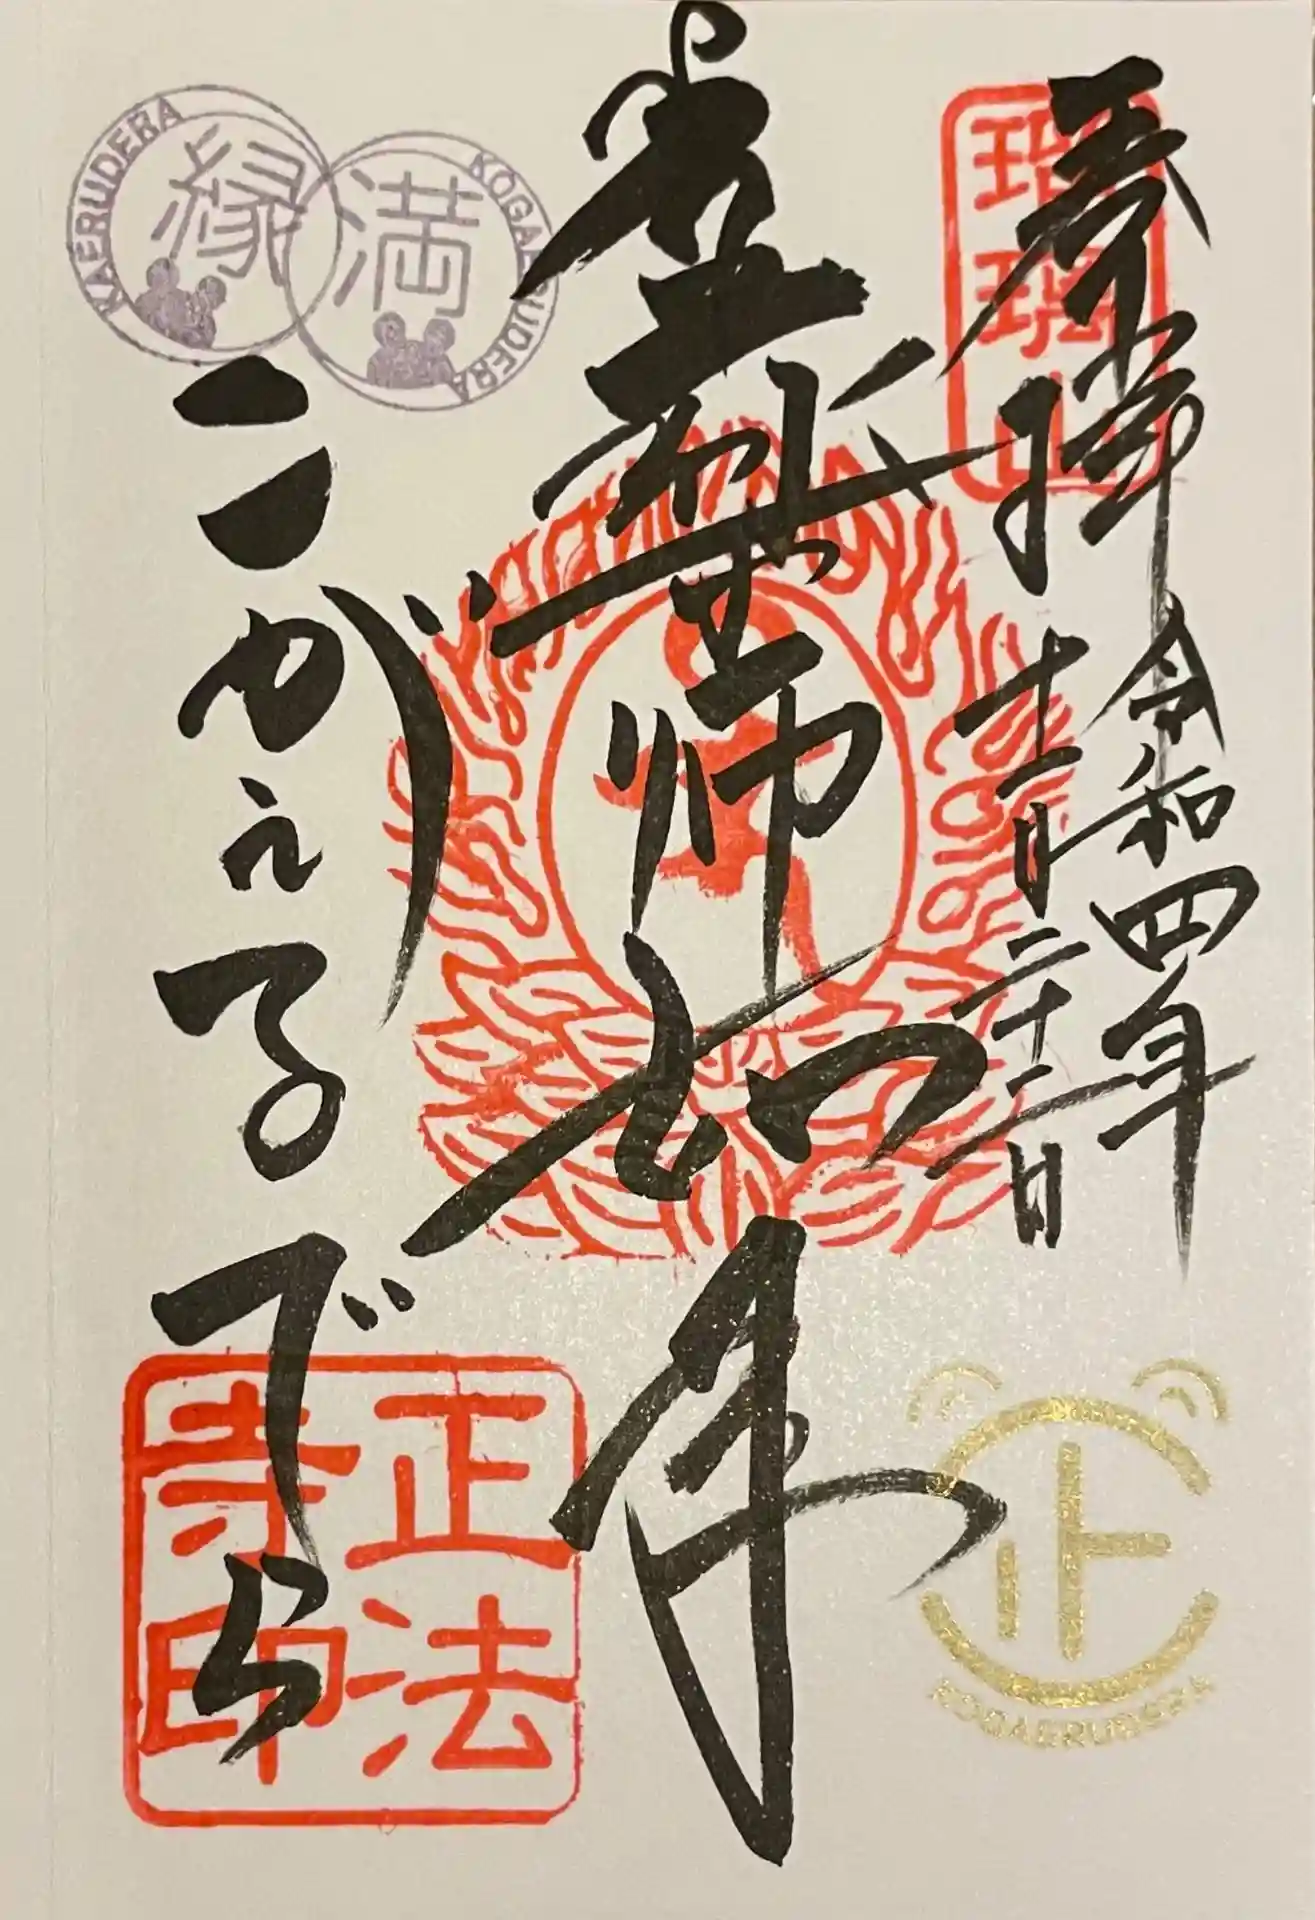 奉拝
令和四年
十二月二十二日
瑠璃山
薬師如来
こがえるでら
正法
寺印
縁
KAERUDERA
満
KOGAERUDERA
正
KOGAERUDERA